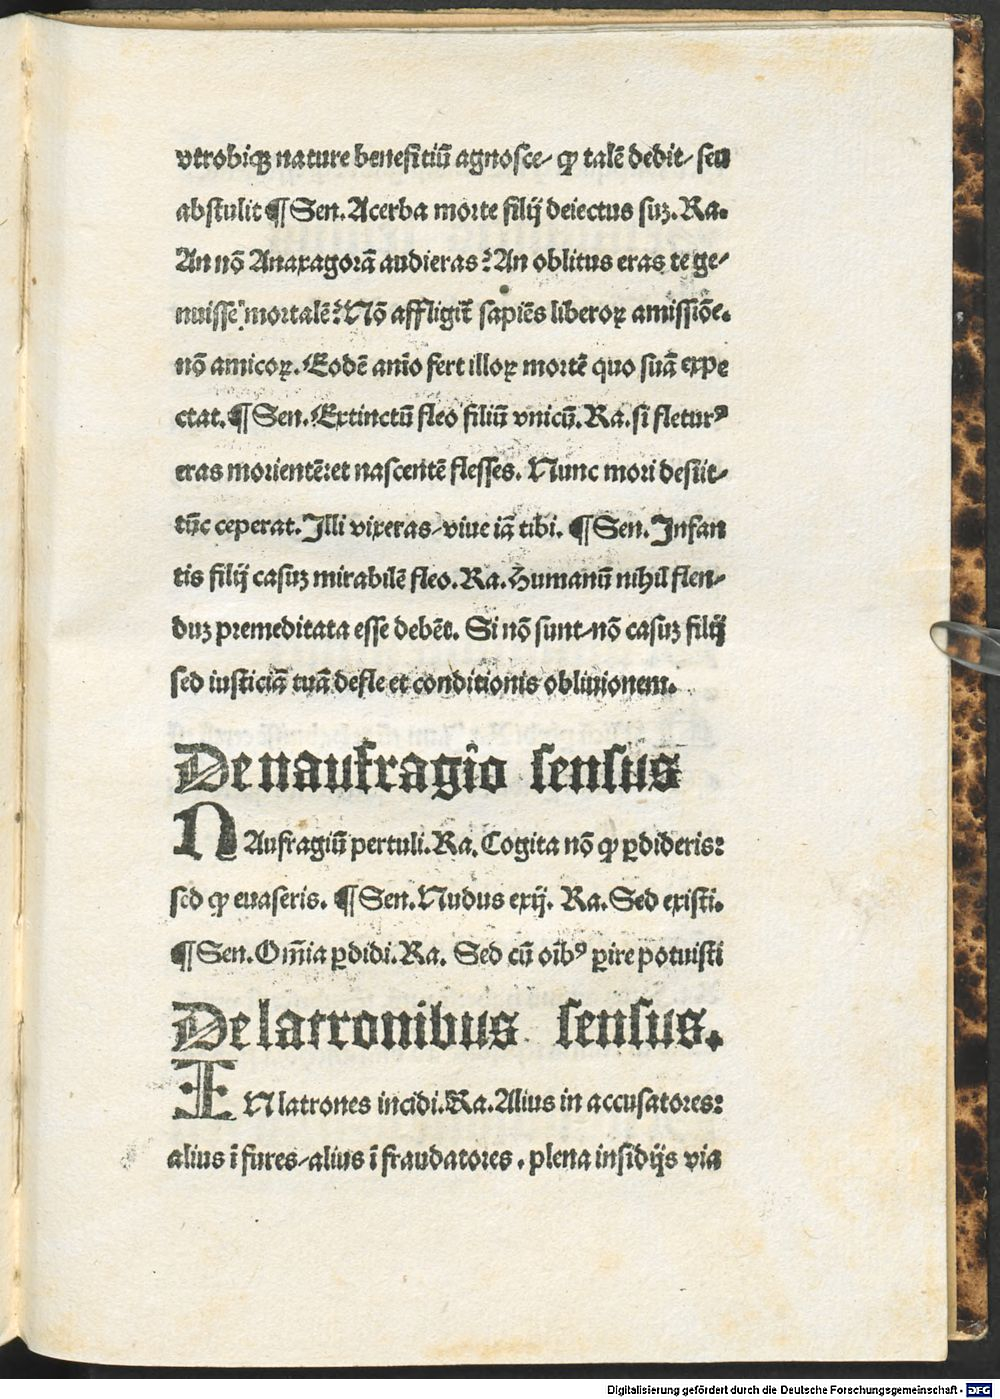 vtrobiqꝫ nature benefitiū agnosce/ qꝙ talē dedit/ seu
abstulit ¶ Sen. Acerba morte filij deiectus suꝫ. Ra.
An nō Anaxagorā audieras? An oblitus eras te ge/
nuisse mortalē? Nō affligit̄ sapiēs liberoꝝ amissiōe.
nō amicoꝝ. Eodē anīo fert illoꝝ mortē quo suā expe
ctat. ¶ Sen. Extinctū fleo filiū vnicū. Ra. si fletur⁹
eras morientē: et nascentē flesses. Nunc mori desiit/
tūc ceperat. Illi vixeras/ viue iā tibi. ¶ Sen. Infan
tis filij casuꝫ mirabilē fleo. Ra. Humanū nihil flen/
duꝫ premeditata esse debēt. Si nō sunt/ nō casuꝫ filij
sed iusticiā tuā defle et conditionis obliuionem.
De naufragio sensus
NAufragiū pertuli. Ra. Cogita nō ꝙ ꝑdideris:
sed ꝙ euaseris. ¶ Sen. Nudus exij. Ra. Sed existi.
¶ Sen. Om̄ia ꝑdidi. Ra. Sed cū oīb⁹ ꝑire potuisti
De latronibus sensus.
IN latrones incidi. Ra. Alius in accusatores:
alius ī fures/ alius ī fraudatores. plena insidijs via
Digitalisierung gefördert durch die Deutsche Forschungsgemeinschaft - DFG